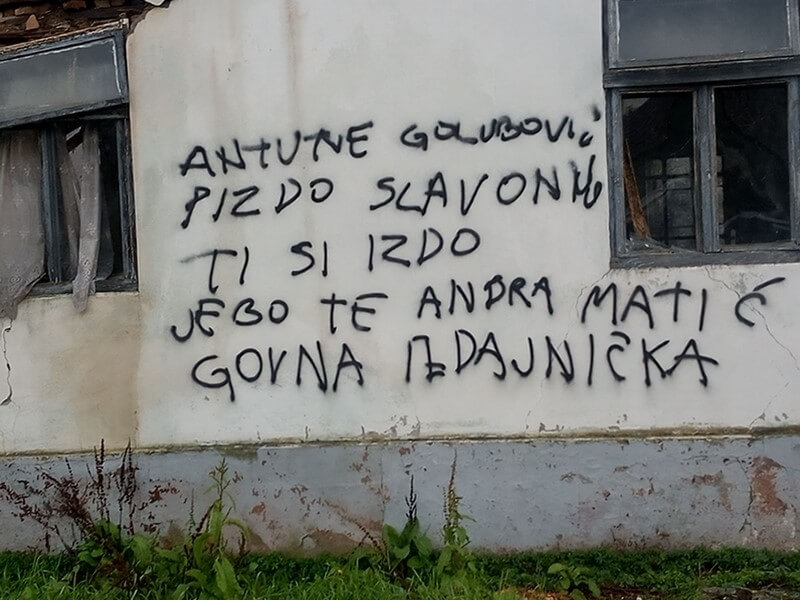 ANTUNE GOLUBOVIĆ
PIZDO SLAVONIJU
TI SI IZDO
JEBO TE ANDRA MATIĆ
GOVNA IZDAJNIČKA